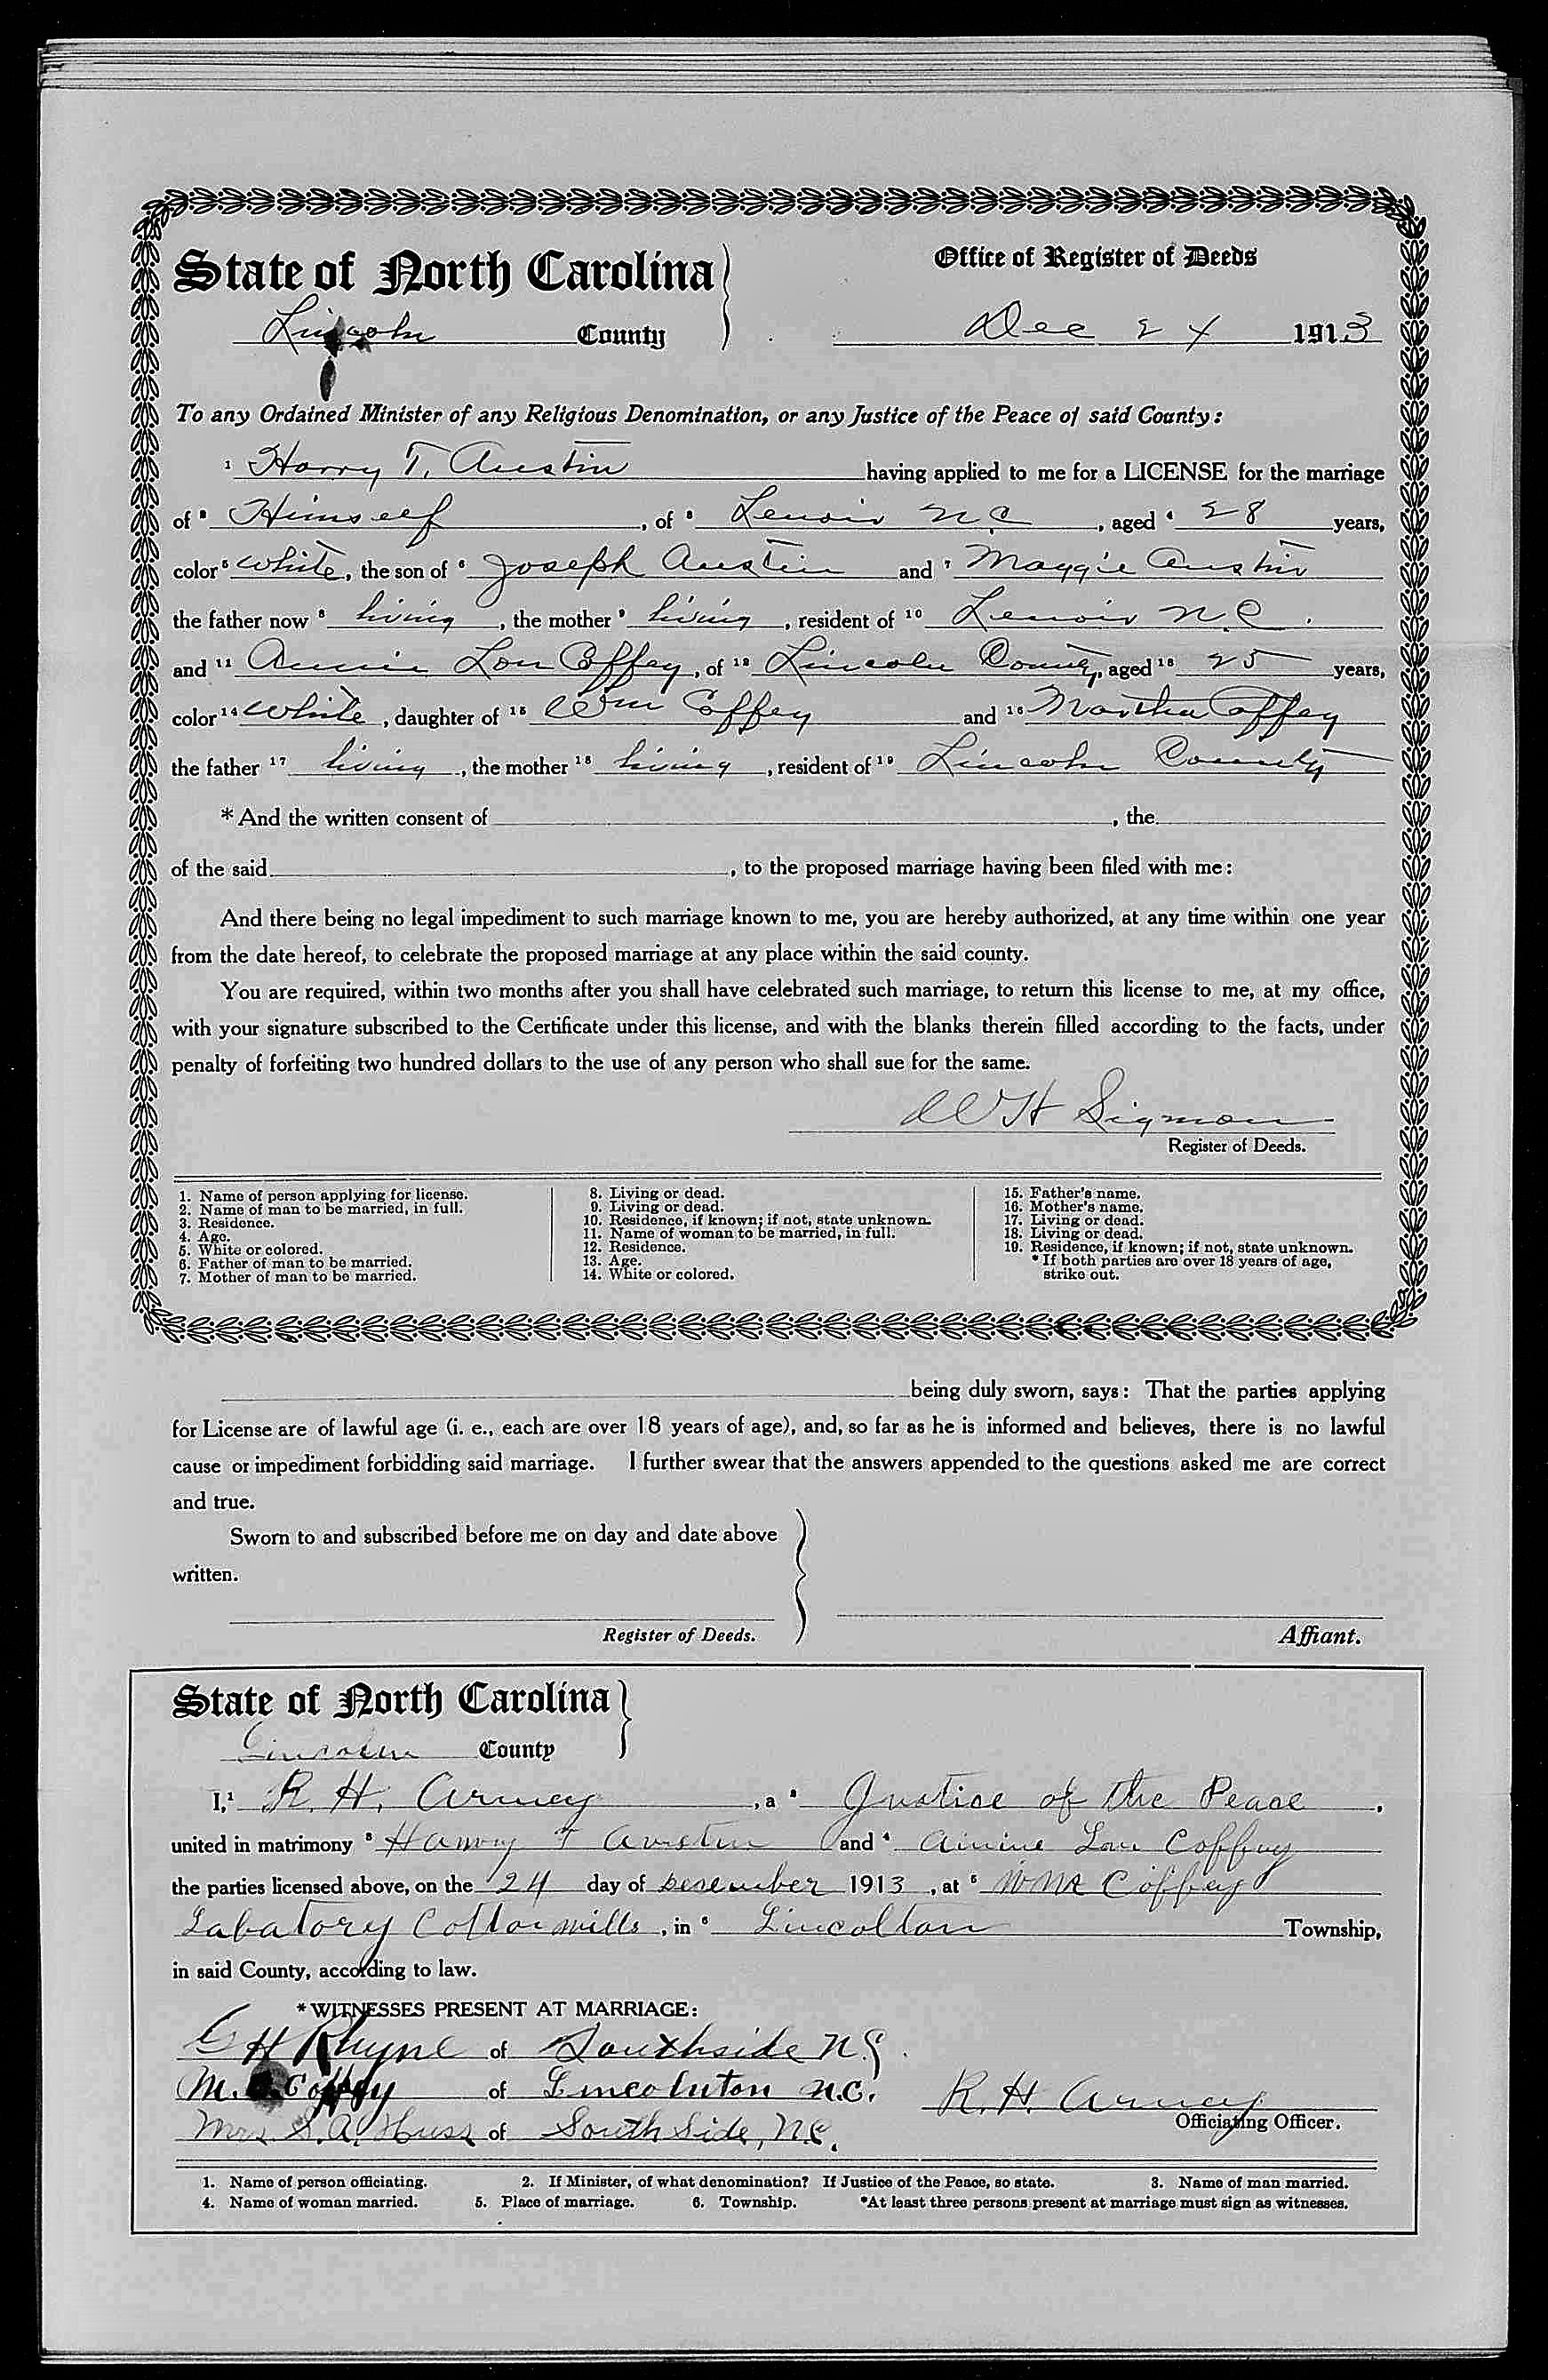 State of North Carolina
Office of Register of Deeds
Lincoln County
Dec 24 1913
To any Ordained Minister of any Religious Denomination, or any Justice of the Peace of said County:
1 Harry T. Austin having applied to me for a LICENSE for the marriage
of 2 Himself, of 3 Lenoir N.C, aged 4 28 years,
color 5 White, the son of 6 Joseph Austin and 7 Maggie Austin
the father now 8 living, the mother 9 living, resident of 10 Lenoir N.C.
and 11 Annie Lou Coffey, of 12 Lincoln County, aged 13 25 years,
color 14 White, daughter of 15 Wm Coffey and 16 Martha Coffey
the father 17 living, the mother 18 living, resident of 19 Lincoln County
* And the written consent of , the
of the said , to the proposed marriage having been filed with me:
And there being no legal impediment to such marriage known to me, you are hereby authorized, at any time within one year
from the date hereof, to celebrate the proposed marriage at any place within the said county.
You are required, within two months after you shall have celebrated such marriage, to return this license to me, at my office,
with your signature subscribed to the Certificate under this license, and with the blanks therein filled according to the facts, under
penalty of forfeiting two hundred dollars to the use of any person who shall sue for the same.
W H Sigmon
Register of Deeds.
1. Name of person applying for license.
2. Name of man to be married, in full.
3. Residence.
4. Age.
5. White or colored.
6. Father of man to be married.
7. Mother of man to be married.
8. Living or dead.
9. Living or dead.
10. Residence, if known; if not, state unknown.
11. Name of woman to be married, in full.
12. Residence.
13. Age.
14. White or colored.
15. Father's name.
16. Mother's name.
17. Living or dead.
18. Living or dead.
19. Residence, if known; if not, state unknown.
* If both parties are over 18 years of age,
strike out.
being duly sworn, says: That the parties applying
for License are of lawful age (i. e., each are over 18 years of age), and, so far as he is informed and believes, there is no lawful
cause or impediment forbidding said marriage. I further swear that the answers appended to the questions asked me are correct
and true.
Sworn to and subscribed before me on day and date above
written.
Register of Deeds.
Affiant.
State of North Carolina
Lincoln County
I, 1 R. H. Arney, a 2 Justice of the Peace.
united in matrimony 3 Harry T Austin and 4 Annie Lou Coffey
the parties licensed above, on the 24 day of Desember 1913, at 5 Wm Coffey
Labatory Cotton mills, in 6 Lincolton Township,
in said County, according to law.
* WITNESSES PRESENT AT MARRIAGE:
H Rhyne of Southside N.C.
M. Coffey of Lincolnton N.C.
R. H. Arney
Officiating Officer.
Mrs S. A. Huss of South Side, N.C.
1. Name of person officiating. 2. If Minister, of what denomination? If Justice of the Peace, so state. 3. Name of man married.
4. Name of woman married. 5. Place of marriage. 6. Township. *At least three persons present at marriage must sign as witnesses.